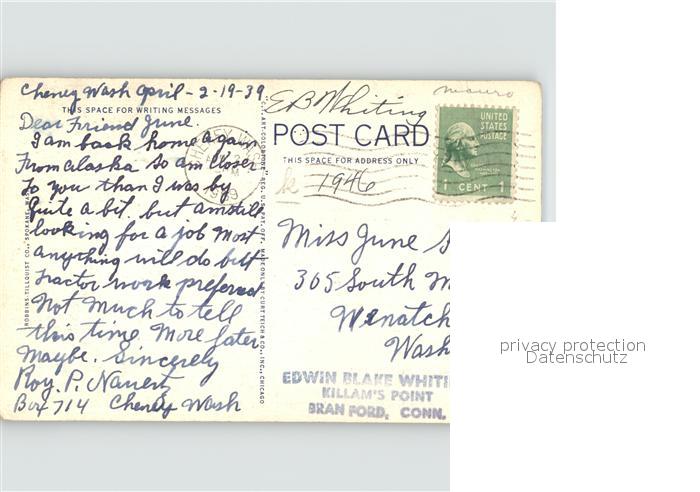 Cheney Wash April - 2-19-39
THIS SPACE FOR WRITING MESSAGES
Dear Friend June.
I am back home again
From alaska so am closer
to you than I was by
Quite a bit. but am still
looking for a job Most
anything will do but
tractor work preferred
Not Much to tell
this time More later
Maybe. Sincerely
Roy. P.
Box 714 Cheney Wash
ROBBINS-TILLQUIST CO., SPOKANE, WASH.
C. T. ART-COLORTONE REG. U.S. PAT. OFF. MADE ONLY BY CURT TEICH & CO., INC., CHICAGO
E B Whiting
POST CARD
THIS SPACE FOR ADDRESS ONLY
1946
CHENEY WASH
UNITED
STATES
POSTAGE
WASHINGTON
1 CENT 1
Miss June
305 South
Wenatch
Wash
EDWIN BLAKE WHITI
KILLAM'S POINT
BRANFORD, CONN.
privacy protection
Datenschutz